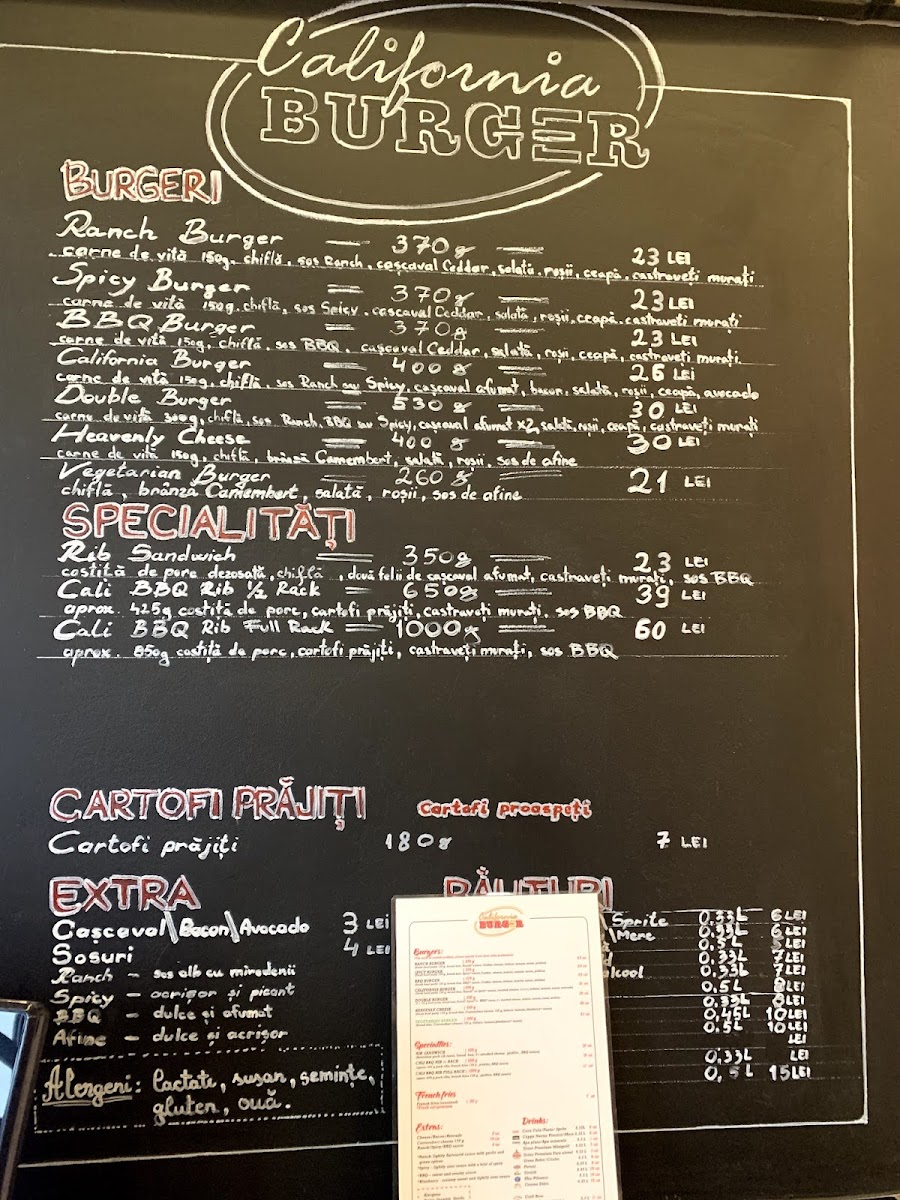 California
BURGER
BURGERI
Ranch Burger 370g 23 LEI
carne de vită 150g, chiflă, sos Ranch, cașcaval Ceddar, salată, roșii, ceapă, castraveți murați
Spicy Burger 370g 23 LEI
carne de vită 150g, chiflă, sos Spicy, cascaval Ceddar, salată, roșii, ceapă, castraveți murați
BBQ Burger 370g 23 LEI
carne de vită 150g, chiflă, sos BBQ, cașcaval Ceddar, salată, roșii, ceapă, castraveți murați.
California Burger 400g 26 LEI
carne de vită 150g, chiflă, sos Ranch sau Spicy, cașcaval afumat, bacon, salată, roșii, ceapă, avocado
Double Burger 530g 30 LEI
carne de vită 300g, chiflă, sos Ranch, BBQ sau Spicy, cașcaval afumat x2, salată, roșii, ceapă, castraveți murați
Heavenly Cheese 400g 30 LEI
carne de vită 150g, chiflă, brânză Camembert, salată, roșii, sos de afine
Vegetarian Burger 260g 21 LEI
chiflă, brânză Camembert, salată, roșii, sos de afine
SPECIALITĂȚI
Rib Sandwich 350g 23 LEI
costiță de porc dezosată, chiflă, două felii de cașcaval afumat, castraveți murați, sos BBQ
Cali BBQ Rib 1/2 Rack 650g 39 LEI
aprox. 425g costiță de porc, cartofi prăjiți, castraveți murați, sos BBQ
Cali BBQ Rib Full Rack 1000g 60 LEI
aprox. 850g costiță de porc, cartofi prăjiți, castraveți murați, sos BBQ
CARTOFI PRĂJIȚI Cartofi proaspeți
Cartofi prăjiți 180g 7 LEI
EXTRA
Cașcaval\Bacon\Avocado 3 LEI
Sosuri 4 LEI
Ranch - sos alb cu mirodenii
Spicy - acrișor și picant
BBQ - dulce și afumat
Afine - dulce și acrișor
Alergeni: lactate, susan, semințe,
gluten, ouă.
BĂUTURI
Sprite 0,33L 6 LEI
Mere 0,33L 6 LEI
0,5L 5 LEI
0,33L 7 LEI
0,33L 7 LEI
0,5L 8 LEI
0,33L 8 LEI
0,45L 10 LEI
0,5L 10 LEI
LEI
0,33L LEI
0,5L 15 LEI
California
BURGER
Burgers:
RANCH BURGER
SPICY BURGER
BBQ BURGER
CALIFORNIA BURGER
DOUBLE BURGER
HEAVENLY CHEESE
VEGETARIAN BURGER
Specialties:
RIB SANDWICH
CALI BBQ RIB 1/2 RACK
CALI BBQ RIB FULL RACK
French fries
Extras:
Drinks: